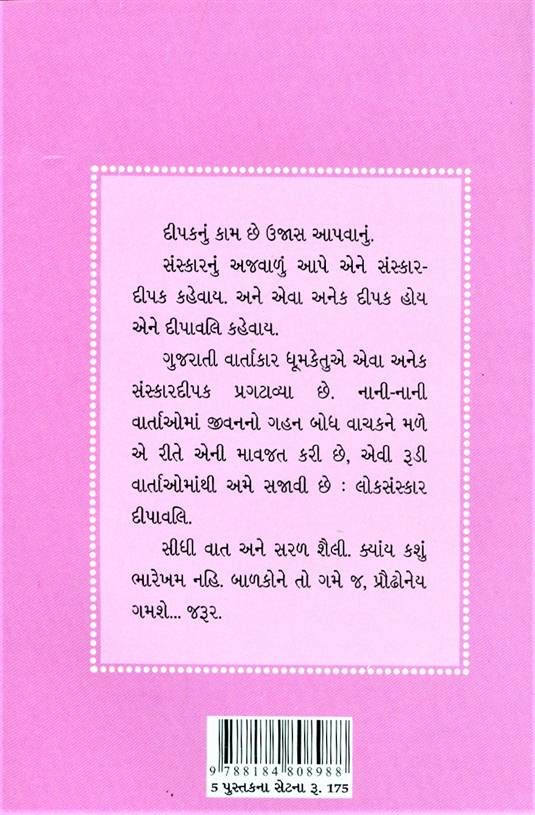 દીપકનું કામ છે ઉજાસ આપવાનું.
સંસ્કારનું અજવાળું આપે એને સંસ્કાર-
દીપક કહેવાય. અને એવા અનેક દીપક હોય
એને દીપાવલિ કહેવાય.
ગુજરાતી વાર્તાકાર ધૂમકેતુએ એવા અનેક
સંસ્કારદીપક પ્રગટાવ્યા છે. નાની-નાની
વાર્તાઓમાં જીવનનો ગહન બોધ વાચકને મળે
એ રીતે એની માવજત કરી છે, એવી રૂડી
વાર્તાઓમાંથી અમે સજાવી છે : લોકસંસ્કાર
દીપાવલિ.
સીધી વાત અને સરળ શૈલી. ક્યાંય કશું
ભારેખમ નહિ. બાળકોને તો ગમે જ, પ્રૌઢોનેય
ગમશે... જરૂર.
9 788184 808988
5 પુસ્તકના સેટના રૂ. 175